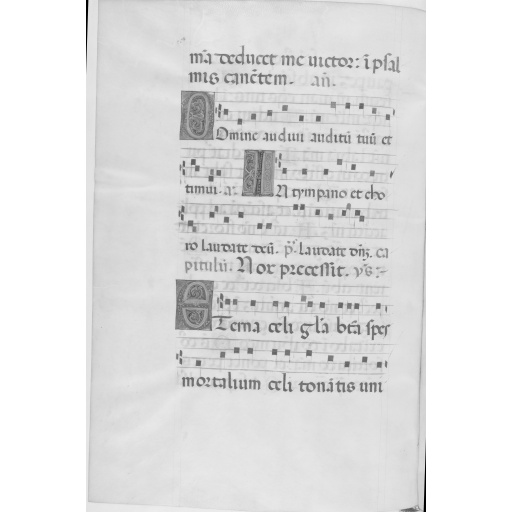 mīa deducet me uictor: ī psal
mis canētem. añ.
Domine audiui auditū tuū et
timui. a: IN tympano et cho
ro laudate deū. p̄. Laudate dñ̄. ca
pitulū. Nox precessit. v̄s:
ETerna celi gl̄a btā spes
mortalium celi tonātis uni